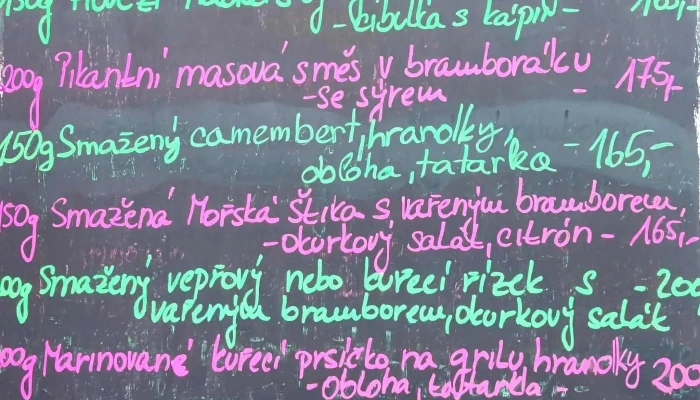 150g
-cibulka s kápií- 165,-
200g Pikantní masová směs v bramboráku
-se sýrem - 175,-
150g Smažený camembert, hranolky,
obloha, tatarka - 165,-
150g Smažená Mořská Štika s vařeným bramborem,
-okurkový salát, citrón - 165,-
00g Smažený vepřový nebo kuřecí řízek s - 200
vařeným bramborem, okurkový salát
00g Marinované kuřecí prsíčko na grilu hranolky
-obloha, tatarka - 200